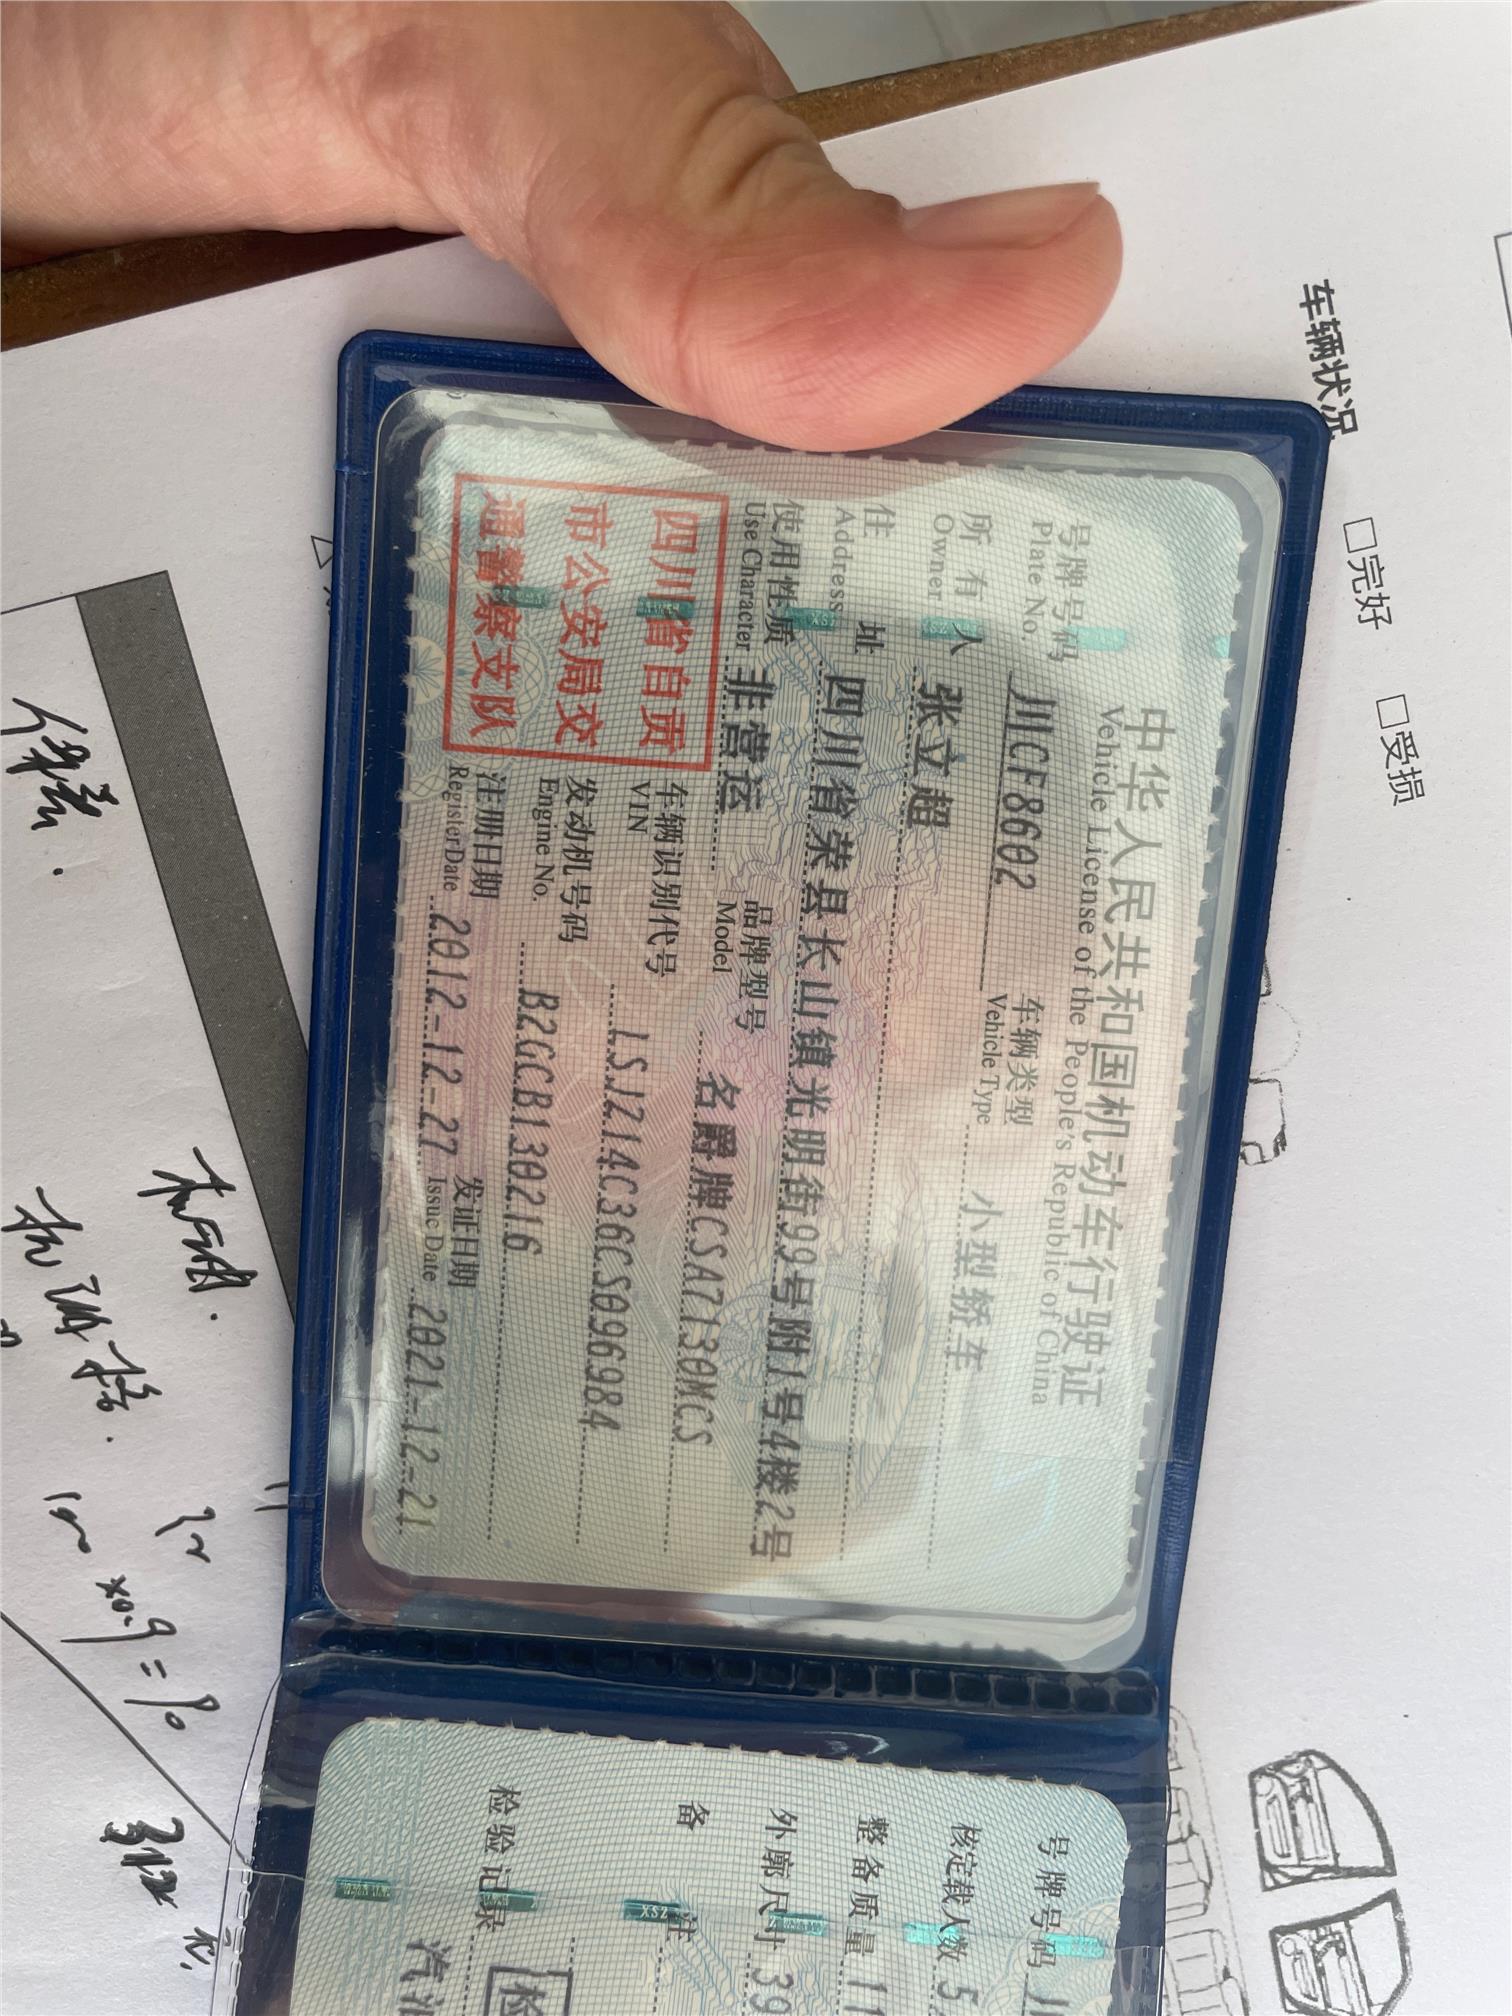 中华人民共和国机动车行驶证
Vehicle License of the People's Republic of China
号牌号码 川CF8602 车辆类型 小型轿车
Plate No. Vehicle Type
所有人 张立超
Owner
住址 四川省荣县长山镇光明街99号附1号4楼2号
Address
使用性质 非营运 品牌型号 名爵牌CSA7130MCS
Use Character Model
四川省自贡
市公安局交
通警察支队
车辆识别代号 LSJZ14C36CS096984
VIN
发动机号码 B2GCB130216
Engine No.
注册日期 2012-12-27 发证日期 2021-12-21
Register Date Issue Date
号牌号码 川
核定载人数 5
整备质量 11
外廓尺寸 39
备注
检验记录 检
汽油
车辆状况
□完好 □受损
x0.9=